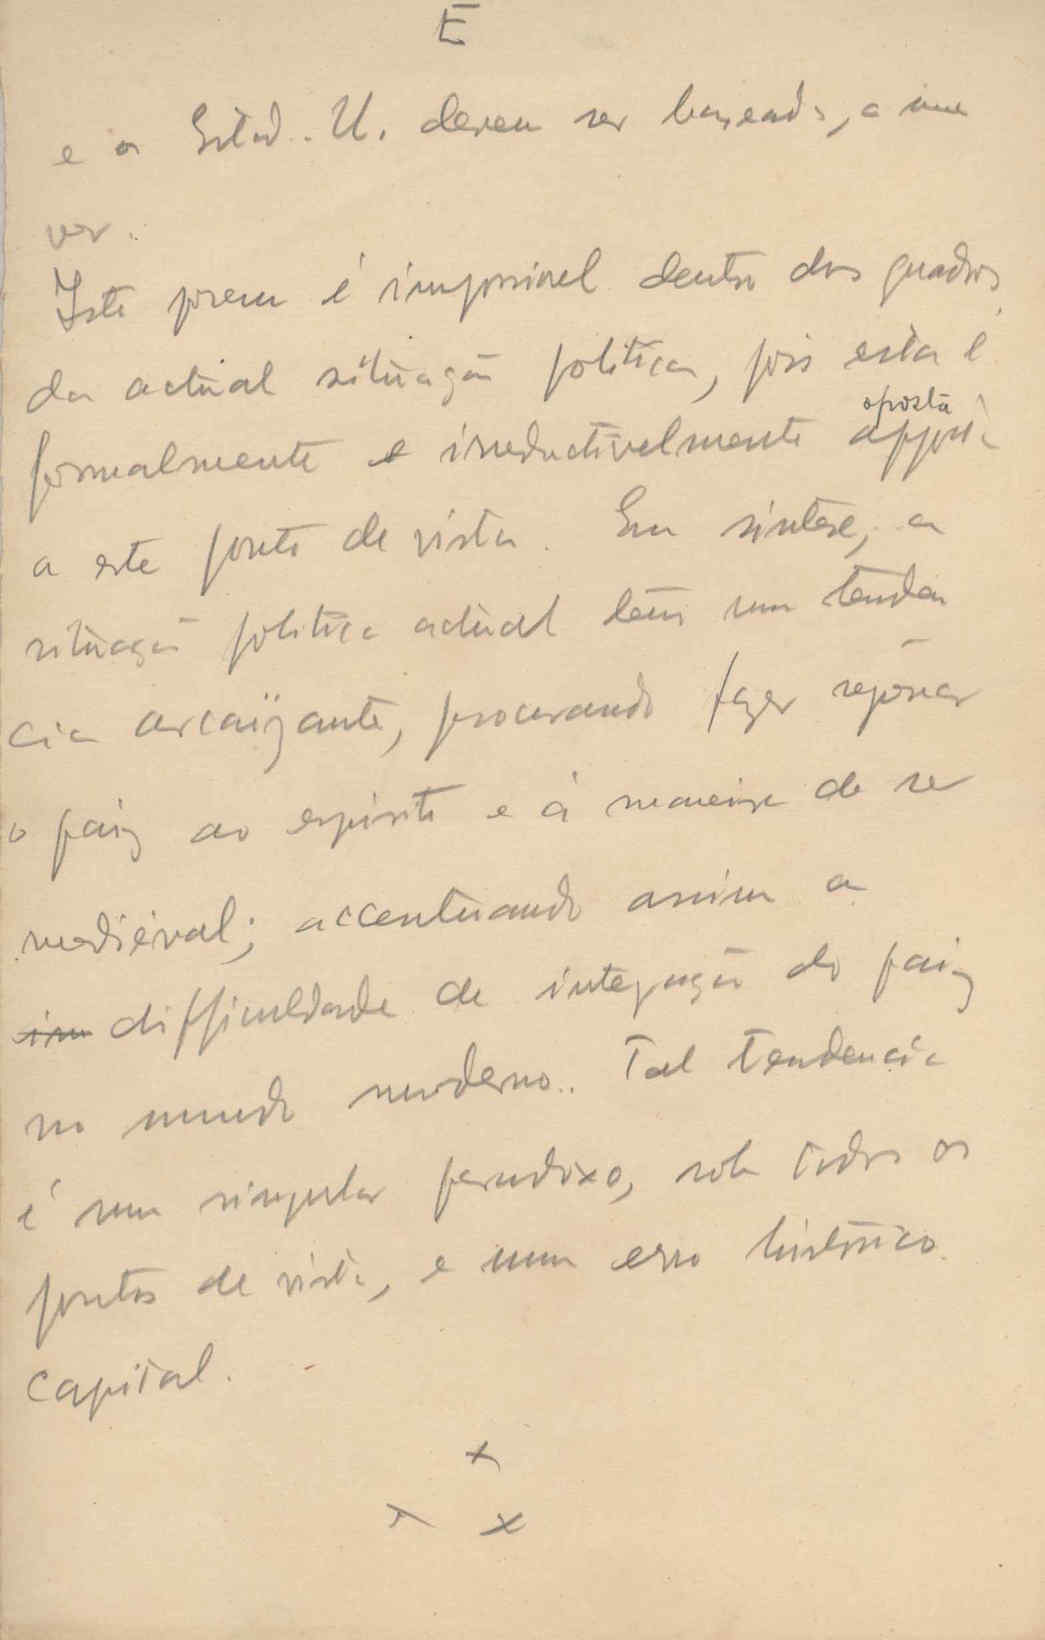 E
e os Estad. U. devem ser baseados, a meu
ver.
Isto porem é impossivel dentro dos quadros
da actual situação politica, pois esta é
formalmente e irreductivelmente
oposta
a este ponto de vista. Em sintese, a
situação politica actual tem um tenden
cia arcaïzante, procurando fazer
o paiz ao espirito e á maneira de ser
medieval; accentuando assim a
im difficuldade de integração do paiz
no mundo moderno. Tal tendencia
é um singular paradoxo, sob todos os
pontos de vista, e um erro historico
capital.
x
x x